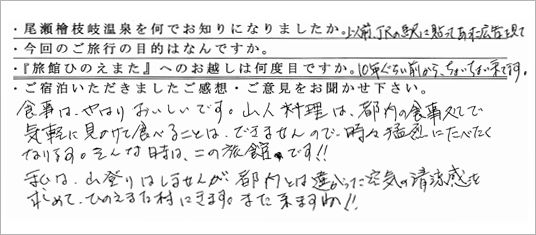 ・尾瀬檜枝岐温泉を何でお知りになりましたか。以前、JRの駅に貼ってあった広告を見て
・今回のご旅行の目的はなんですか。
・『旅館ひのえまた』へのお越しは何度目ですか。10年ぐらい前から、ちょいちょい来てます。
・ご宿泊いただきましたご感想・ご意見をお聞かせ下さい。
食事は、やはりおいしいです。山人料理は、都内の食事処で
気軽に見つけて食べることは、できませんので、時々猛烈にたべたく
なります。そんな時は、この旅館です!!
私は、山登りはしませんが、都内とは違った空気の清涼感を
求めて、ひのえまた村にきます。また来ますね!!